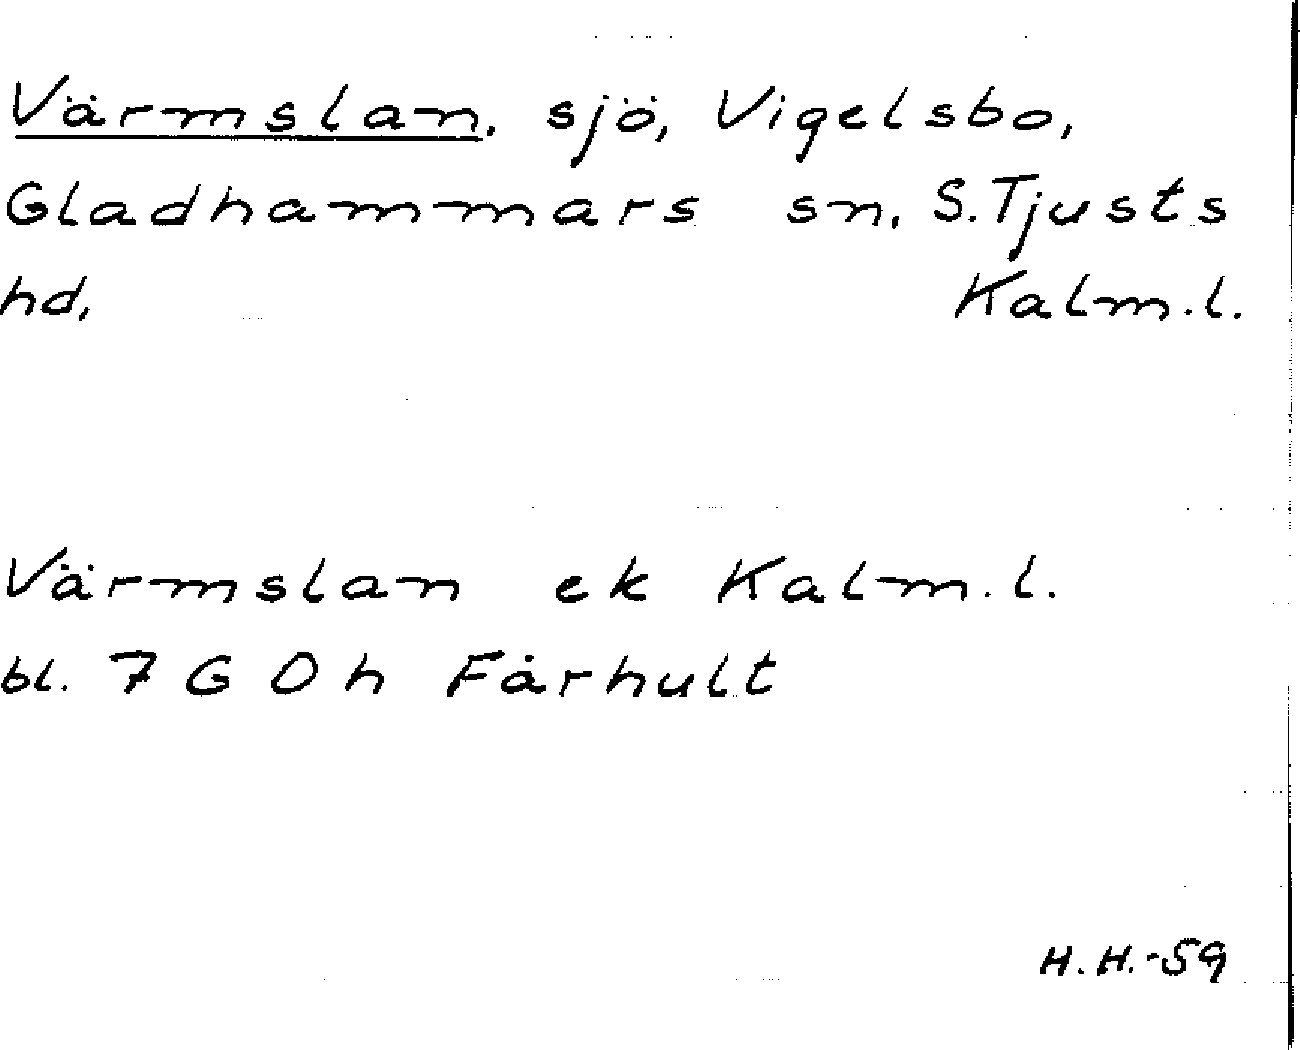 Värmslan, sjö, Vigelsbo,
Gladhammars sn, S. Tjusts
hd, Kalm. l.
Värmslan ek Kalm. l.
bl. 7 G 0 h Fårhult
H. H. -59